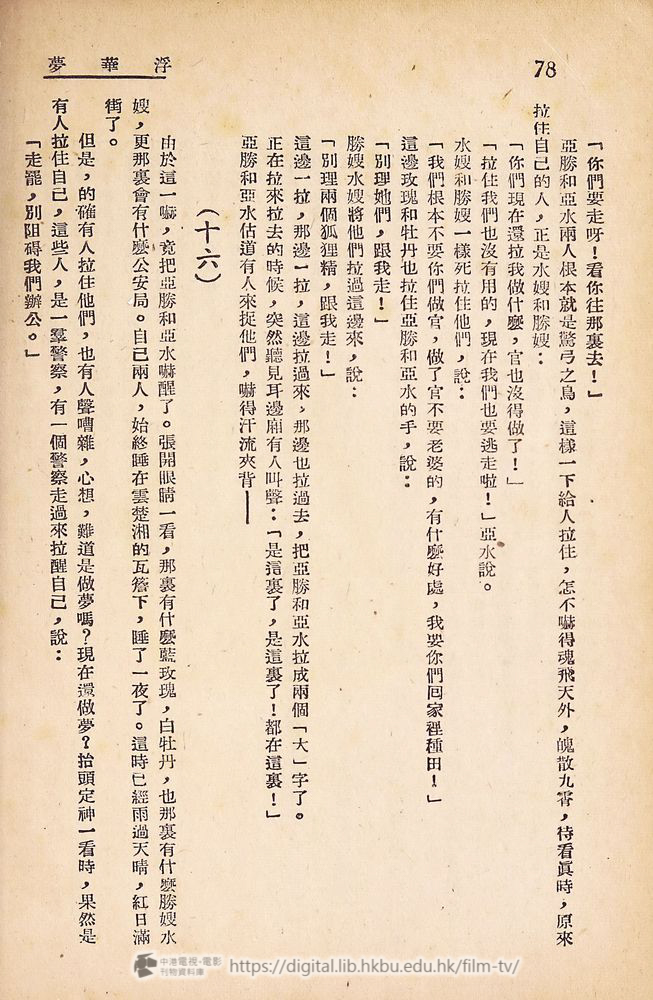 浮華夢
78
「你們要走呀！看你往那裏去！」
亞勝和亞水兩人根本就是驚弓之鳥，這樣一下給人拉住，怎不嚇得魂飛天外，魄散九霄，待看眞時，原來
拉住自己的人，正是水嫂和勝嫂：
「你們現在還拉我做什麽，官也沒得做了！」
「拉住我們也沒有用的，現在我們也要逃走啦！」亞水說。
水嫂和勝嫂一樣死拉住他們，說：
「我們根本不要你們做官，做了官不要老婆的，有什麽好處，我要你們回家裡種田！」
這邊玫瑰和牡丹也拉住亞勝和亞水的手，說：
「別理她們，跟我走！」
勝嫂水嫂將他們拉過這邊來，說：
「別理兩個狐狸精，跟我走！」
這邊一拉，那邊一拉，這邊拉過來，那邊也拉過去，把亞勝和亞水拉成兩個「大」字了。
正在拉來拉去的時候，突然聽見耳邊廂有人叫聲：「是這裏了，是這裏了！都在這裏！」
亞勝和亞水估道有人來捉他們，嚇得汗流夾背——
（十六）
由於這一嚇，竟把亞勝和亞水嚇醒了。張開眼睛一看，那裏有什麽藍玫瑰，白牡丹，也那裏有什麽勝嫂水
嫂，更那裏會有什麽公安局。自己兩人，始終睡在雲楚湘的瓦簷下，睡了一夜了。這時已經雨過天晴，紅日滿
街了。
但是，的確有人拉住他們，也有人聲嘈雜，心想，難道是做夢嗎？現在還做夢？抬頭定神一看時，果然是
有人拉住自己，這些人，是一羣警察，有一個警察走過來拉醒自己，說：
「走罷，別阻碍我們辦公。」
中港電視·電影
刊物資料庫
https://digital.lib.hkbu.edu.hk/film-tv/